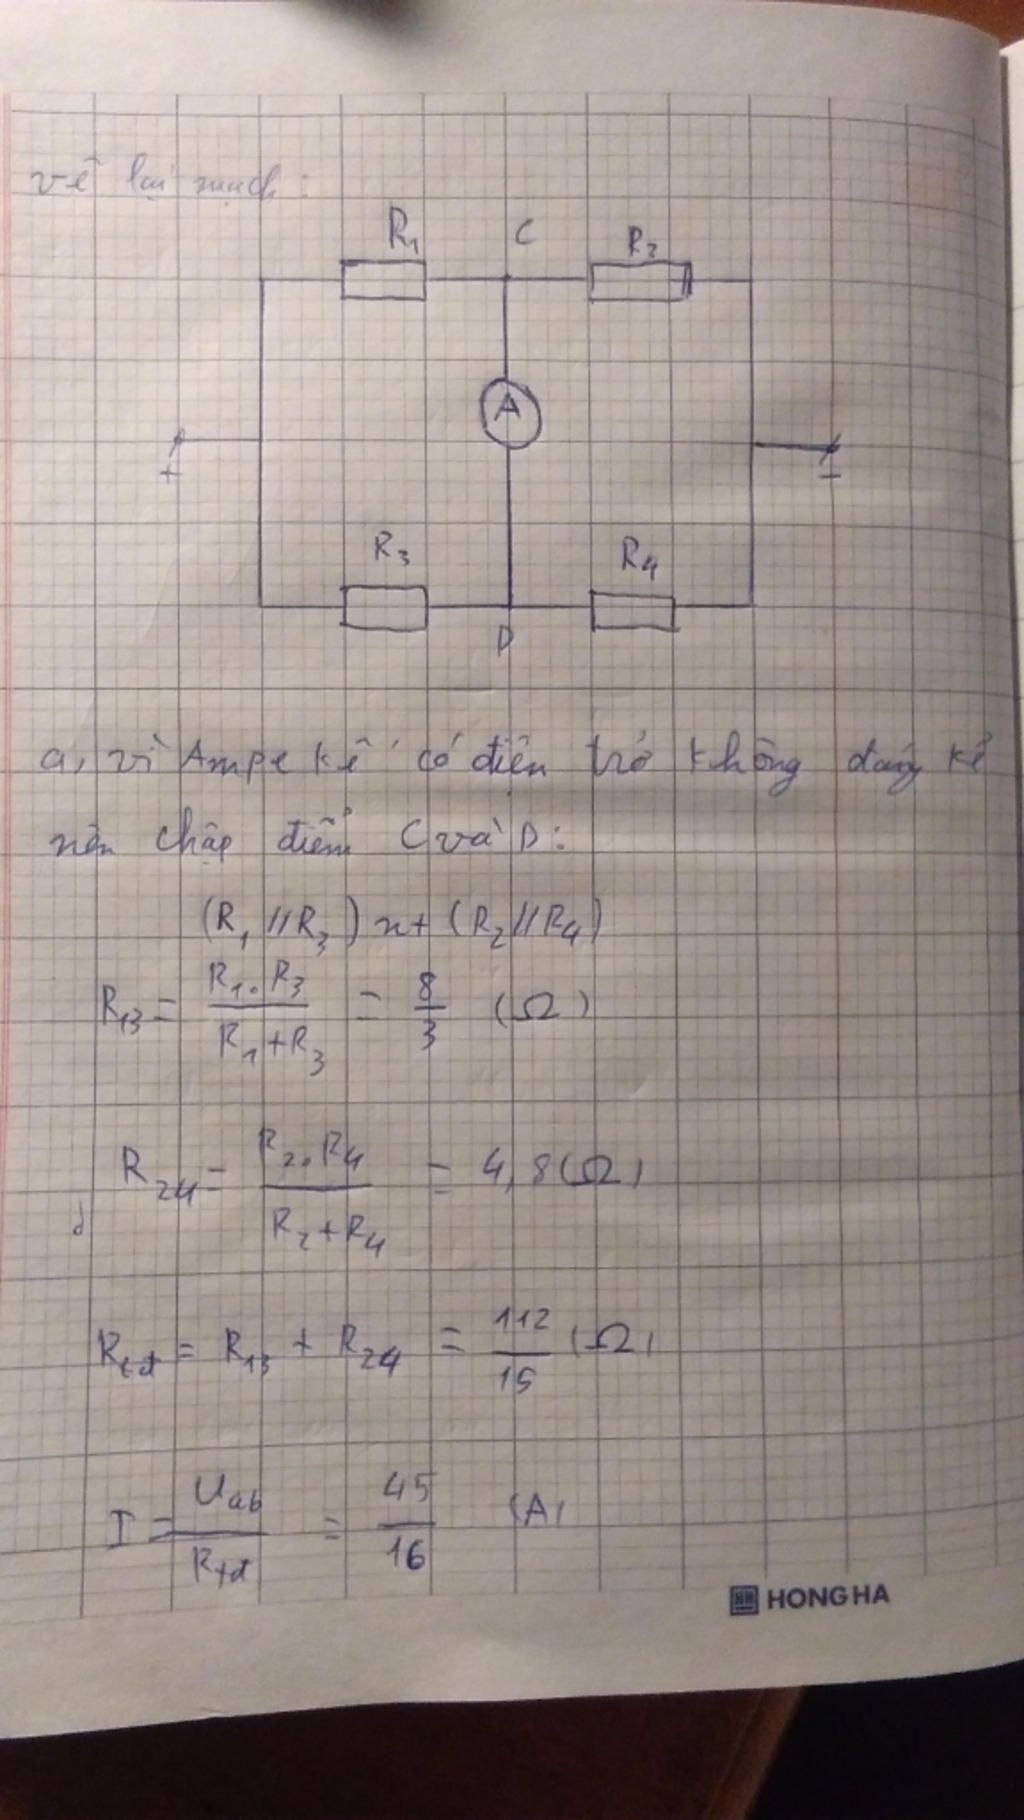 vẽ lại mạch:
R₁ C R₂
A
+ −
R₃ R₄
D
a, vì Ampe kế có điện trở không đáng kể
nên chập điểm C và D:
(R₁ // R₃) nt (R₂ // R₄)
R₁₃ = R₁.R₃ / R₁+R₃ = 8/3 (Ω)
R₂₄ = R₂.R₄ / R₂+R₄ = 4,8 (Ω)
Rtđ = R₁₃ + R₂₄ = 112/15 (Ω)
I = Uab / Rtđ = 45/16 (A)
HONG HA